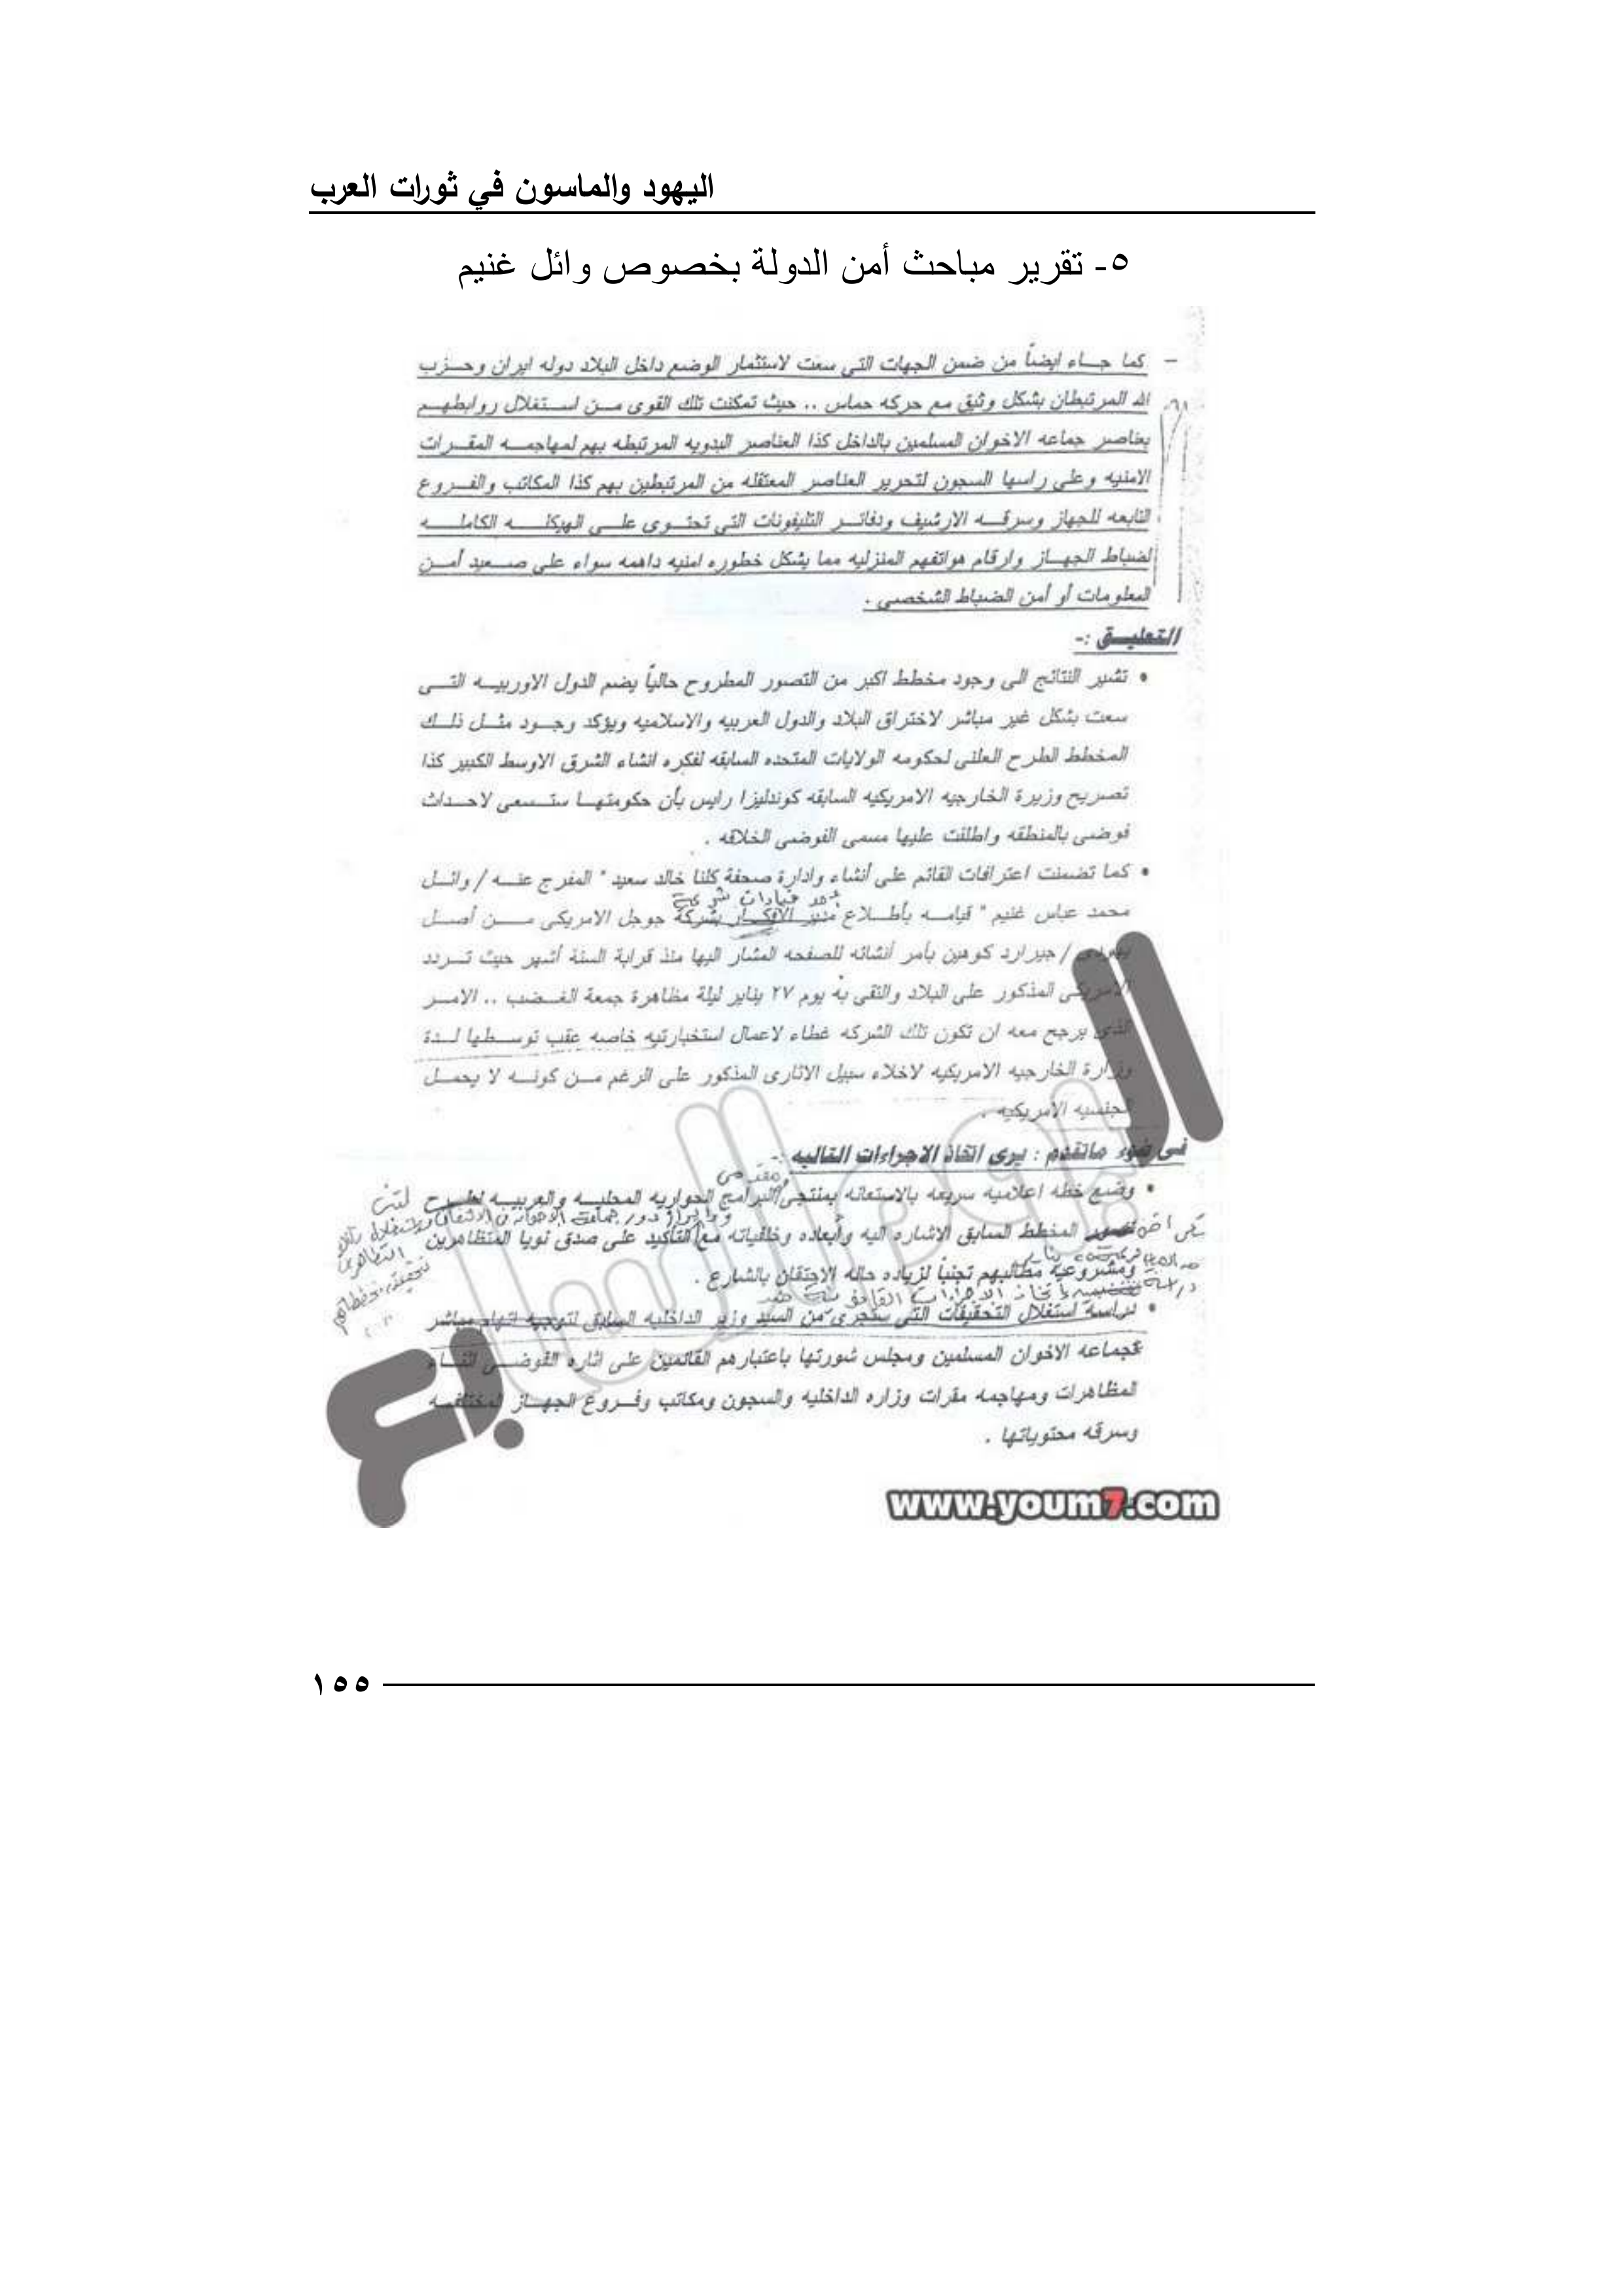 اليهود والماسون في ثورات العرب
٥- تقرير مباحث أمن الدولة بخصوص وائل غنيم
- كما جاء ايضاً من ضمن الجهات التى سعت لاستثمار الوضع داخل البلاد دوله ايران وحزب
الله المرتبطان بشكل وثيق مع حركه حماس .. حيث تمكنت تلك القوى من استغلال روابطهم
بعناصر جماعه الاخوان المسلمين بالداخل كذا العناصر البدويه المرتبطه بهم لمهاجمه المقرات
الامنيه وعلى راسها السجون لتحرير العناصر المعتقله من المرتبطين بهم كذا المكاتب والفروع
التابعه للجهاز وسرقه الارشيف ودفاتر التليفونات التى تحتوى على الهيكله الكامله
لضباط الجهاز وارقام هواتفهم المنزليه مما يشكل خطوره امنيه داهمه سواء على صعيد أمن
المعلومات أو أمن الضباط الشخصى .
التعليق :-
• تشير النتائج الى وجود مخطط اكبر من التصور المطروح حالياً يضم الدول الاوربيه التى
سعت بشكل غير مباشر لاختراق البلاد والدول العربيه والاسلاميه ويؤكد وجود مثل ذلك
المخطط الطرح العلنى لحكومه الولايات المتحده السابقه لفكره انشاء الشرق الاوسط الكبير كذا
تصريح وزيرة الخارجيه الامريكيه السابقه كوندليزا رايس بأن حكومتها ستسعى لاحداث
فوضى بالمنطقه واطلقت عليها مسمى الفوضى الخلاقه .
• كما تضمنت اعترافات القائم على أنشاء وادارة صحفة كلنا خالد سعيد " المفرج عنه / وائل
احد قيادات شركة
محمد عباس غنيم " قيامه بأطلاع مدير الافكار بشركة جوجل الامريكى من أصل
يهودى / جيرارد كوهين بأمر أنشائه للصفحه المشار اليها منذ قرابة الستة أشهر حيث تردد
الامريكى المذكور على البلاد والتقى به يوم ٢٧ يناير ليلة مظاهرة جمعة الغضب .. الامر
الذى يرجح معه ان تكون تلك الشركه غطاء لاعمال استخبارتيه خاصه عقب توسطها لدة
وزارة الخارجيه الامريكيه لاخلاء سبيل الاثارى المذكور على الرغم من كونه لا يحمل
الجنسيه الامريكيه .
فى ضوء ماتقدم : يرى اتخاذ الاجراءات التاليه :-
ومقدمى
• وضع خطه اعلاميه سريعه بالاستعانه بمنتجى البرامج الحواريه المحليه والعربيه لطرح
تصور المخطط السابق الاشاره اليه وأبعاده وخلفياته مع التأكيد على صدق نويا المتظاهرين
ومشروعية مطالبهم تجنباً لزياده حاله الاحتقان بالشارع .
• دراسة استغلال التحقيقات التى ستجرى من السيد وزير الداخليه السابق لتوجيه اتهام مباشر
لجماعه الاخوان المسلمين ومجلس شورتها باعتبارهم القائمين على اثاره الفوضى اثناء
المظاهرات ومهاجمه مقرات وزاره الداخليه والسجون ومكاتب وفروع الجهاز المختلفه
وسرقه محتوياتها .
اليوم السابع
www.youm7.com
١٥٥